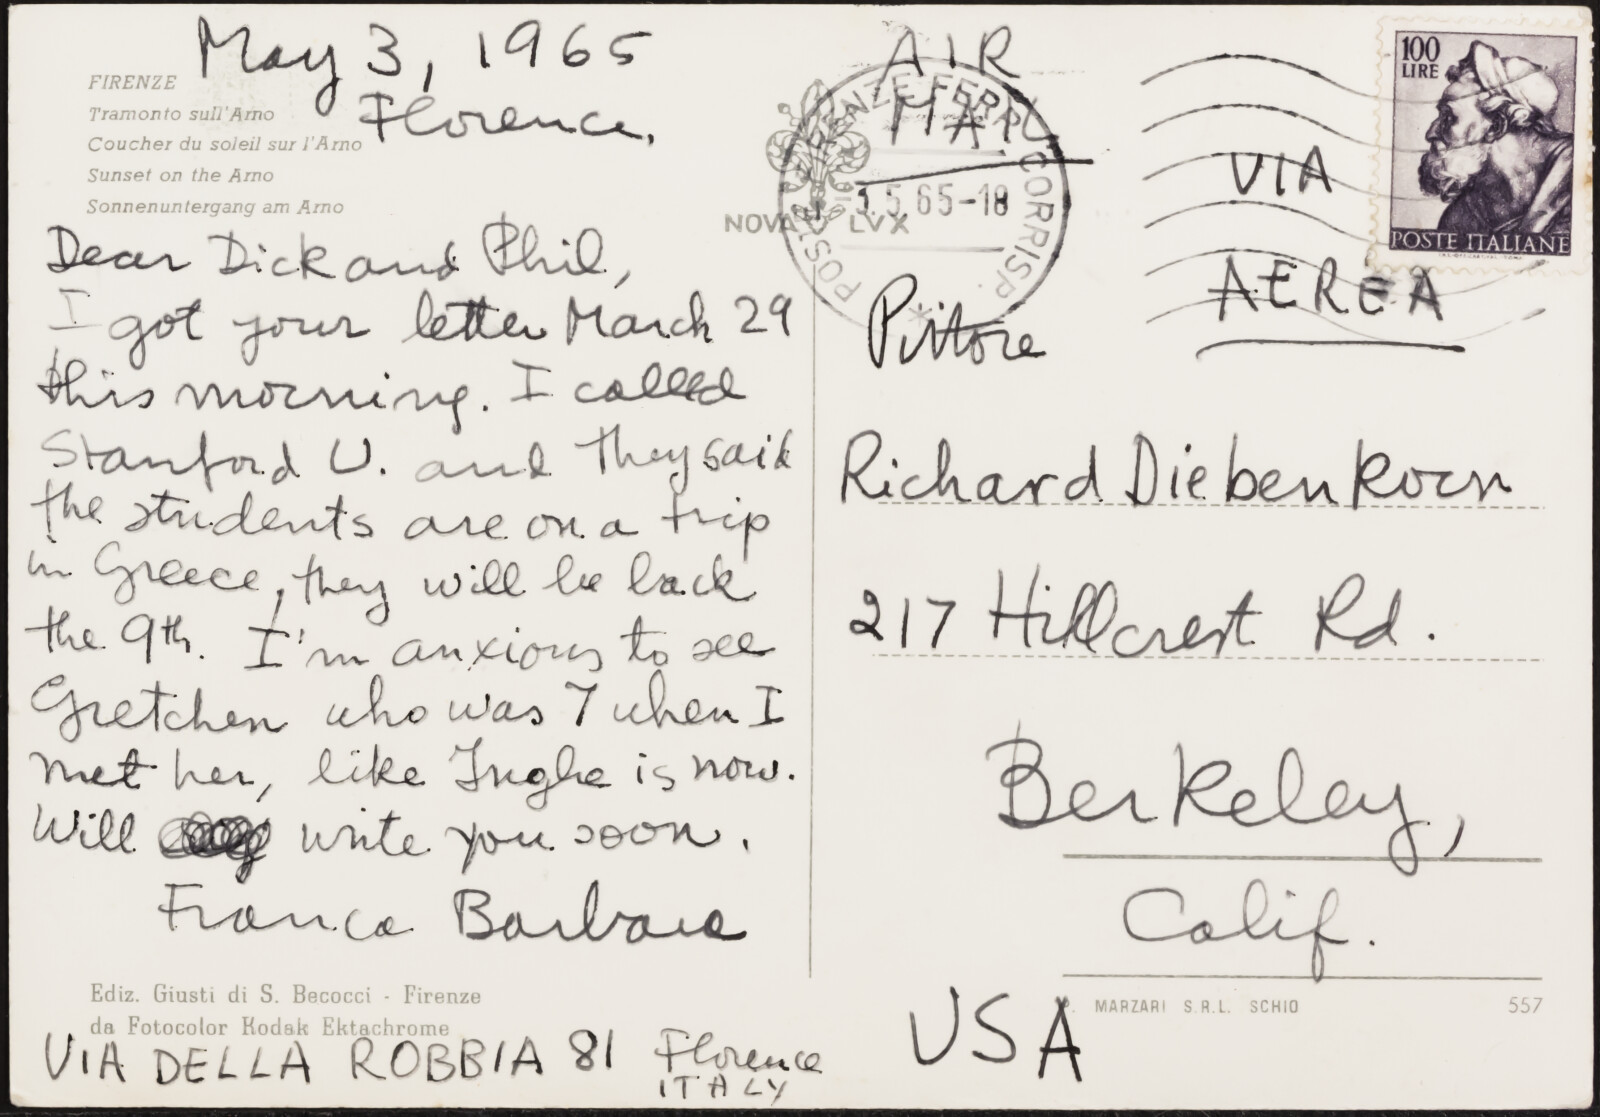 May 3, 1965
Florence.
FIRENZE
Tramonto sull'Arno
Coucher du soleil sur l'Arno
Sunset on the Arno
Sonnenuntergang am Arno
Dear Dick and Phil,
I got your letter March 29
this morning. I called
Stanford U. and they said
the students are on a trip
in Greece, they will be back
the 9th. I'm anxious to see
Gretchen who was 7 when I
met her, like Inghe is now.
Will write you soon.
Franca Barbara
Ediz. Giusti di S. Becocci - Firenze
da Fotocolor Kodak Ektachrome
VIA DELLA ROBBIA 81 Florence
ITALY
AIR
MAIL
POSTE FERR. CORRISP.
5.65-18
NOVA LVX
100
LIRE
POSTE ITALIANE
VIA
AEREA
Pittore
Richard Diebenkorn
217 Hillcrest Rd.
Berkeley,
Calif.
USA
MARZARI S.R.L. SCHIO
557